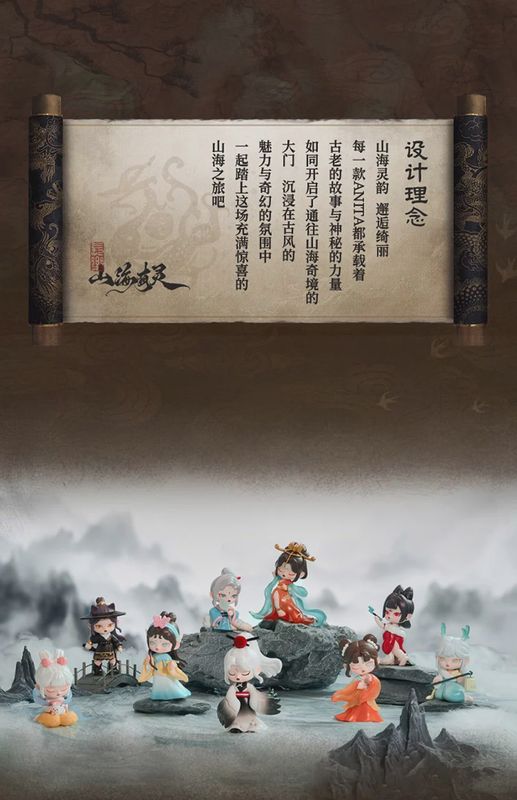 设计理念
山海灵韵 邂逅绮丽
每一款ANITA都承载着
古老的故事与神秘的力量
如同开启了通往山海奇境的
大门 沉浸在古风的
魅力与奇幻的氛围中
一起踏上这场充满惊喜的
山海之旅吧
山海有灵